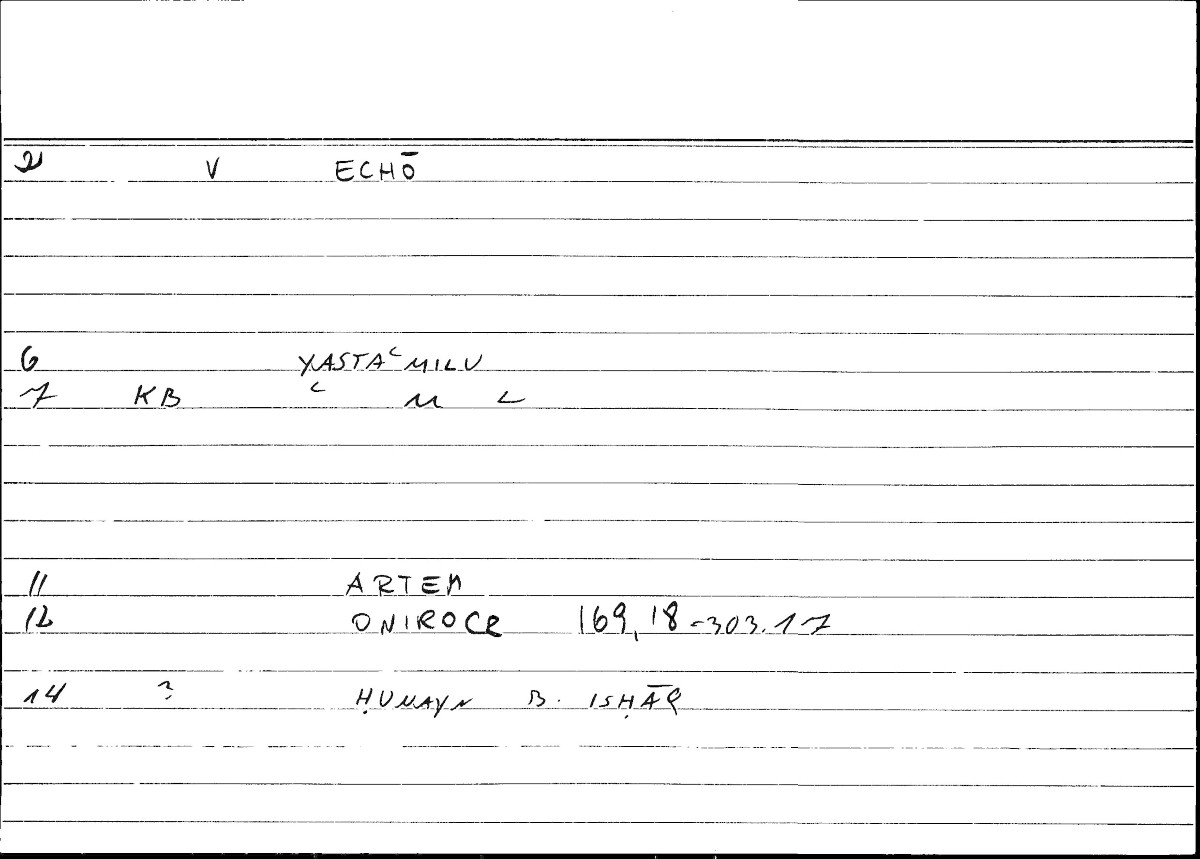 2 V ECHŌ
6 YASTAʿMILU
7 KB ʿ M L
11 ARTEM
12 ONIROCR 169,18-303.17
14 ? ḤUNAYN B. ISḤĀQ